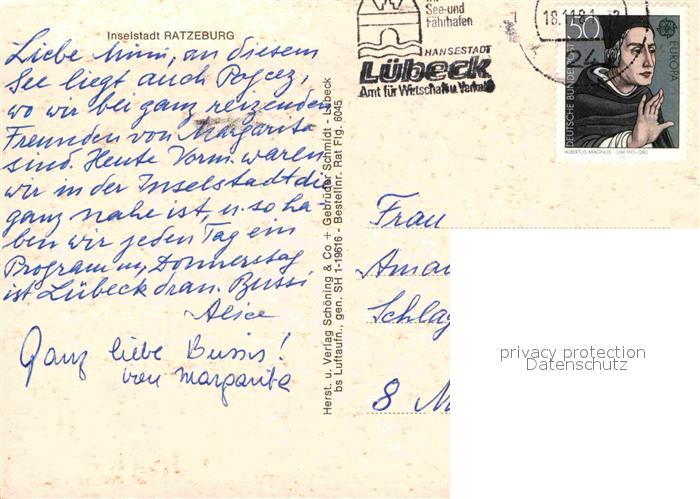 Inselstadt RATZEBURG
Liebe Mimi, an diesem
See liegt auch
wo wir bei ganz reizenden
Freunden von Margarita
sind. Heute Vorm. waren
wir in der Inselstadt die
ganz nahe ist, u. so ha-
ben wir jeden Tag ein
Programm, Donnerstag
ist Lübeck dran. Bussi
Alice
Ganz liebe Bussis!
von Margarita
Herst. u. Verlag Schöning & Co + Gebrüder Schmidt - Lübeck
bs Luftaufn., gen. SH 1-19616 - Bestellnr. Rat Flg. 6045
See- und
Fährhafen
HANSESTADT
Lübeck
Amt für Wirtschaft u. Verkehr
18.11.81
24
50
DEUTSCHE BUNDESPOST
EUROPA
CEPT
ALBERTUS MAGNUS · UM 1193-1280
Frau
Schlag
8 M
privacy protection
Datenschutz